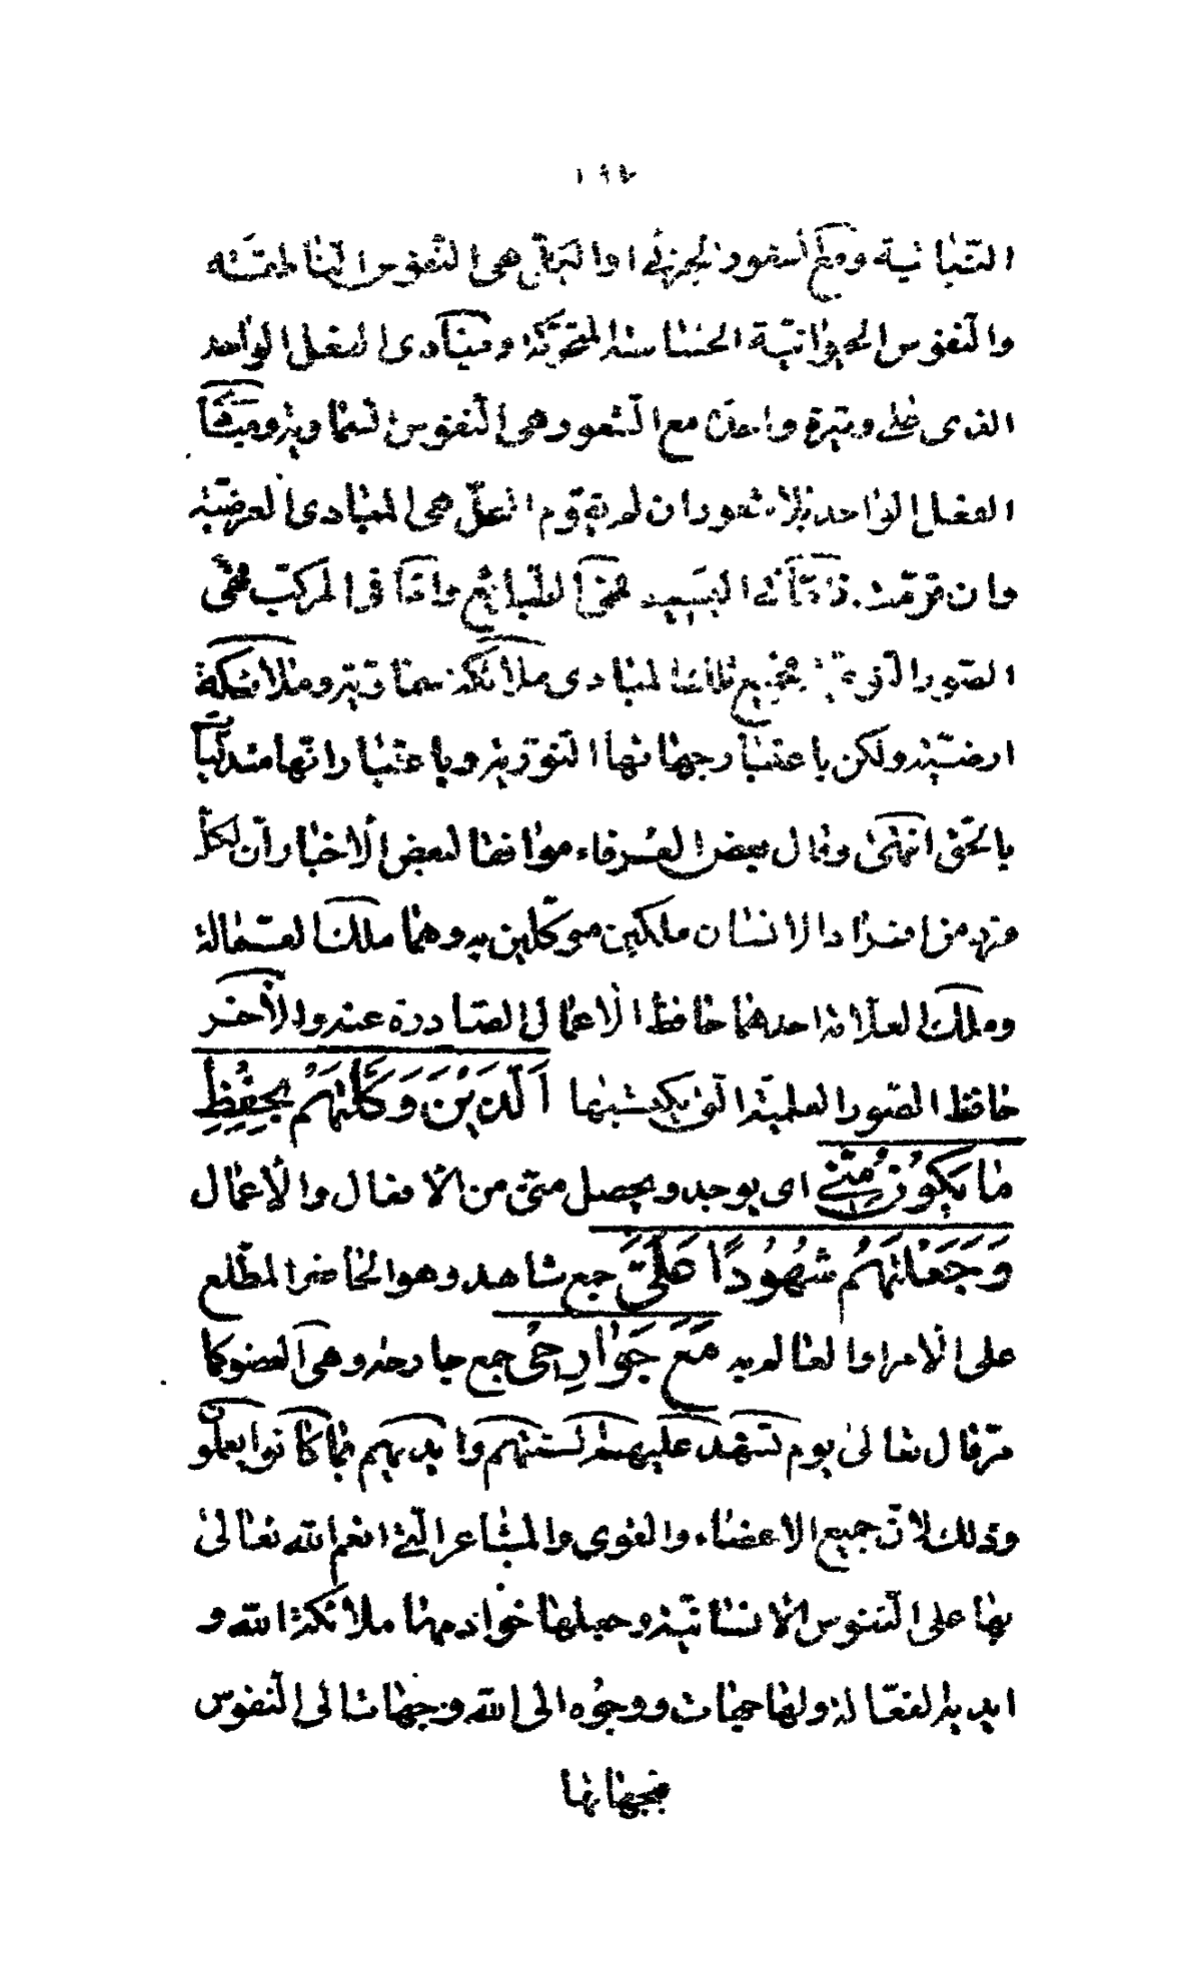 ١٩٧
النباتية ومع الشعور الجزئى ا والخيالى هى النفوس
والنفوس الحيوانية الحساسة المتحركة ومبادى الفعل الواحد
الذى على وتيرة واحدة مع الشعور هى النفوس السماوية ومبادى
الفعل الواحد بلا شعور ان لم يقوم المحل هى المبادى العرضية
وان قومت فاما فى البسيط فهى الطبايع واما فى المركب فهى
الصور النوعية فجميع تلك المبادى ملائكة سماوية وملائكة
ارضية ولكن باعتبار جهاتها النورية وباعتبار انها متدلية
بالحق انتهى وقال بعض العرفاء موافقا لبعض الاخبار ان لكل
فرد من افراد الانسان ملكين موكلين به وهما ملك العمالة
وملك العلامة احدهما حافظ الاعمال الصادرة عنه والاخر
حافظ الصور العلمية التى يكتسبها اَلَّذينَ وَكَّلْتَهُمْ بِحِفْظِ
مٰا يَكُونُ مِنّى اى يوجد ويحصل منى من الافعال والاعمال
وَجَعَلْتَهُمْ شُهُودًا عَلَىَّ جمع شاهد وهو الحاضر المطلع
على الامر والعالم به مَعَ جَوٰارِحى جمع جارحة وهى العضو كما
مر قال تعالى يوم تشهد عليهم السنتهم وايديهم بما كانوا يعملو
وذلك لان جميع الاعضاء والقوى والمشاعر التى انعم الله تعالى
بها على النفوس الانسانية وجعلها خوادمها ملائكة الله و
ايديه الفعالة ولها جهات ووجوه الى الله وجهات الى النفوس
فجهاتها